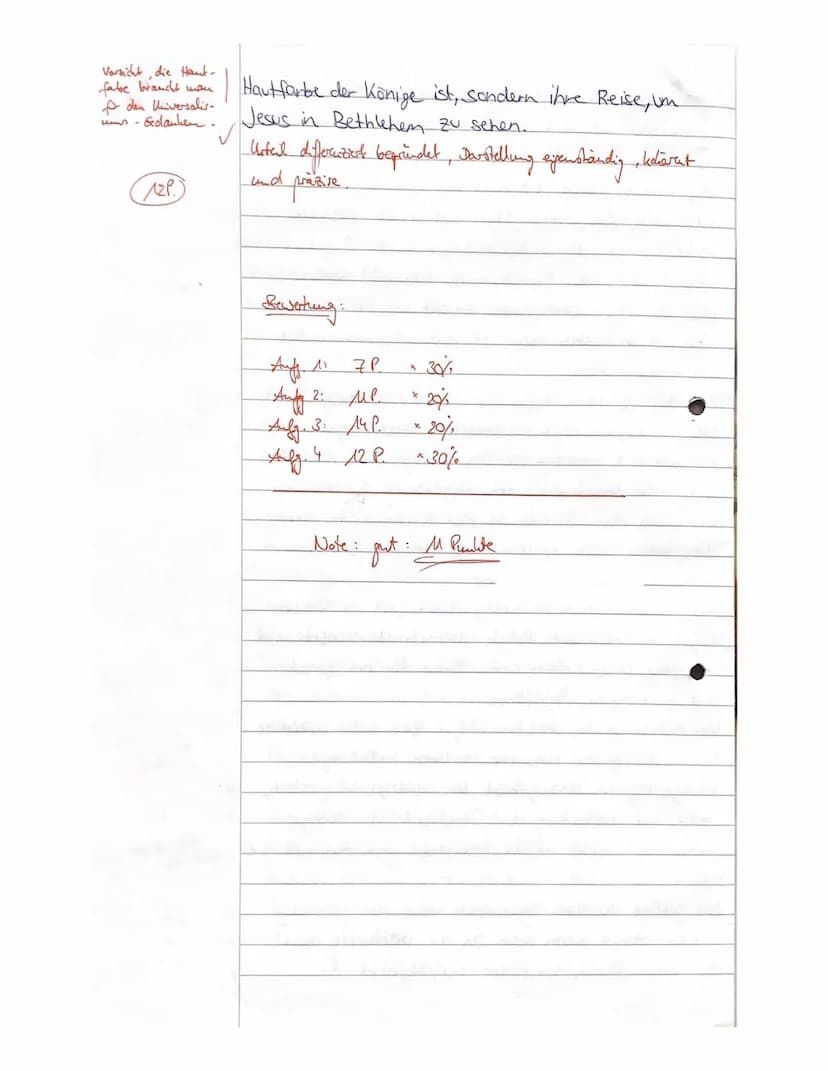 Vorsicht, die Haut-
farbe braucht man
für den Universalis-
mus-Gedanken.
12P.
Hautfarbe der Könige ist, sondern ihre Reise, um
Jesus in Bethlehem zu sehen.
Urteil differenziert begründet, Darstellung eigenständig, kohärent
und präzise.
Bewertung:
Aufg. 1: 7 P. × 30%
Aufg 2: 11P. × 20%
Aufg. 3: 14 P. × 20%
Aufg. 4 12 P. × 30%
Note: gut: 11 Punkte